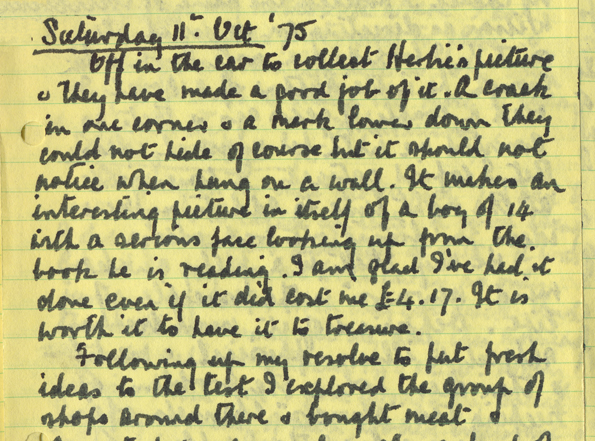 Saturday 11th Oct '75
Off in the car to collect Herbie's picture
& they have made a good job of it. A crack
in one corner & a mark lower down they
could not hide of course but it should not
notice when hung on a wall. It makes an
interesting picture in itself of a boy of 14
with a serious face looking up from the
book he is reading. I am glad I've had it
done even if it did cost me £4.17. It is
worth it to have it to treasure.
Following up my resolve to put fresh
ideas to the test I explored the group of
shops around there & bought meat &